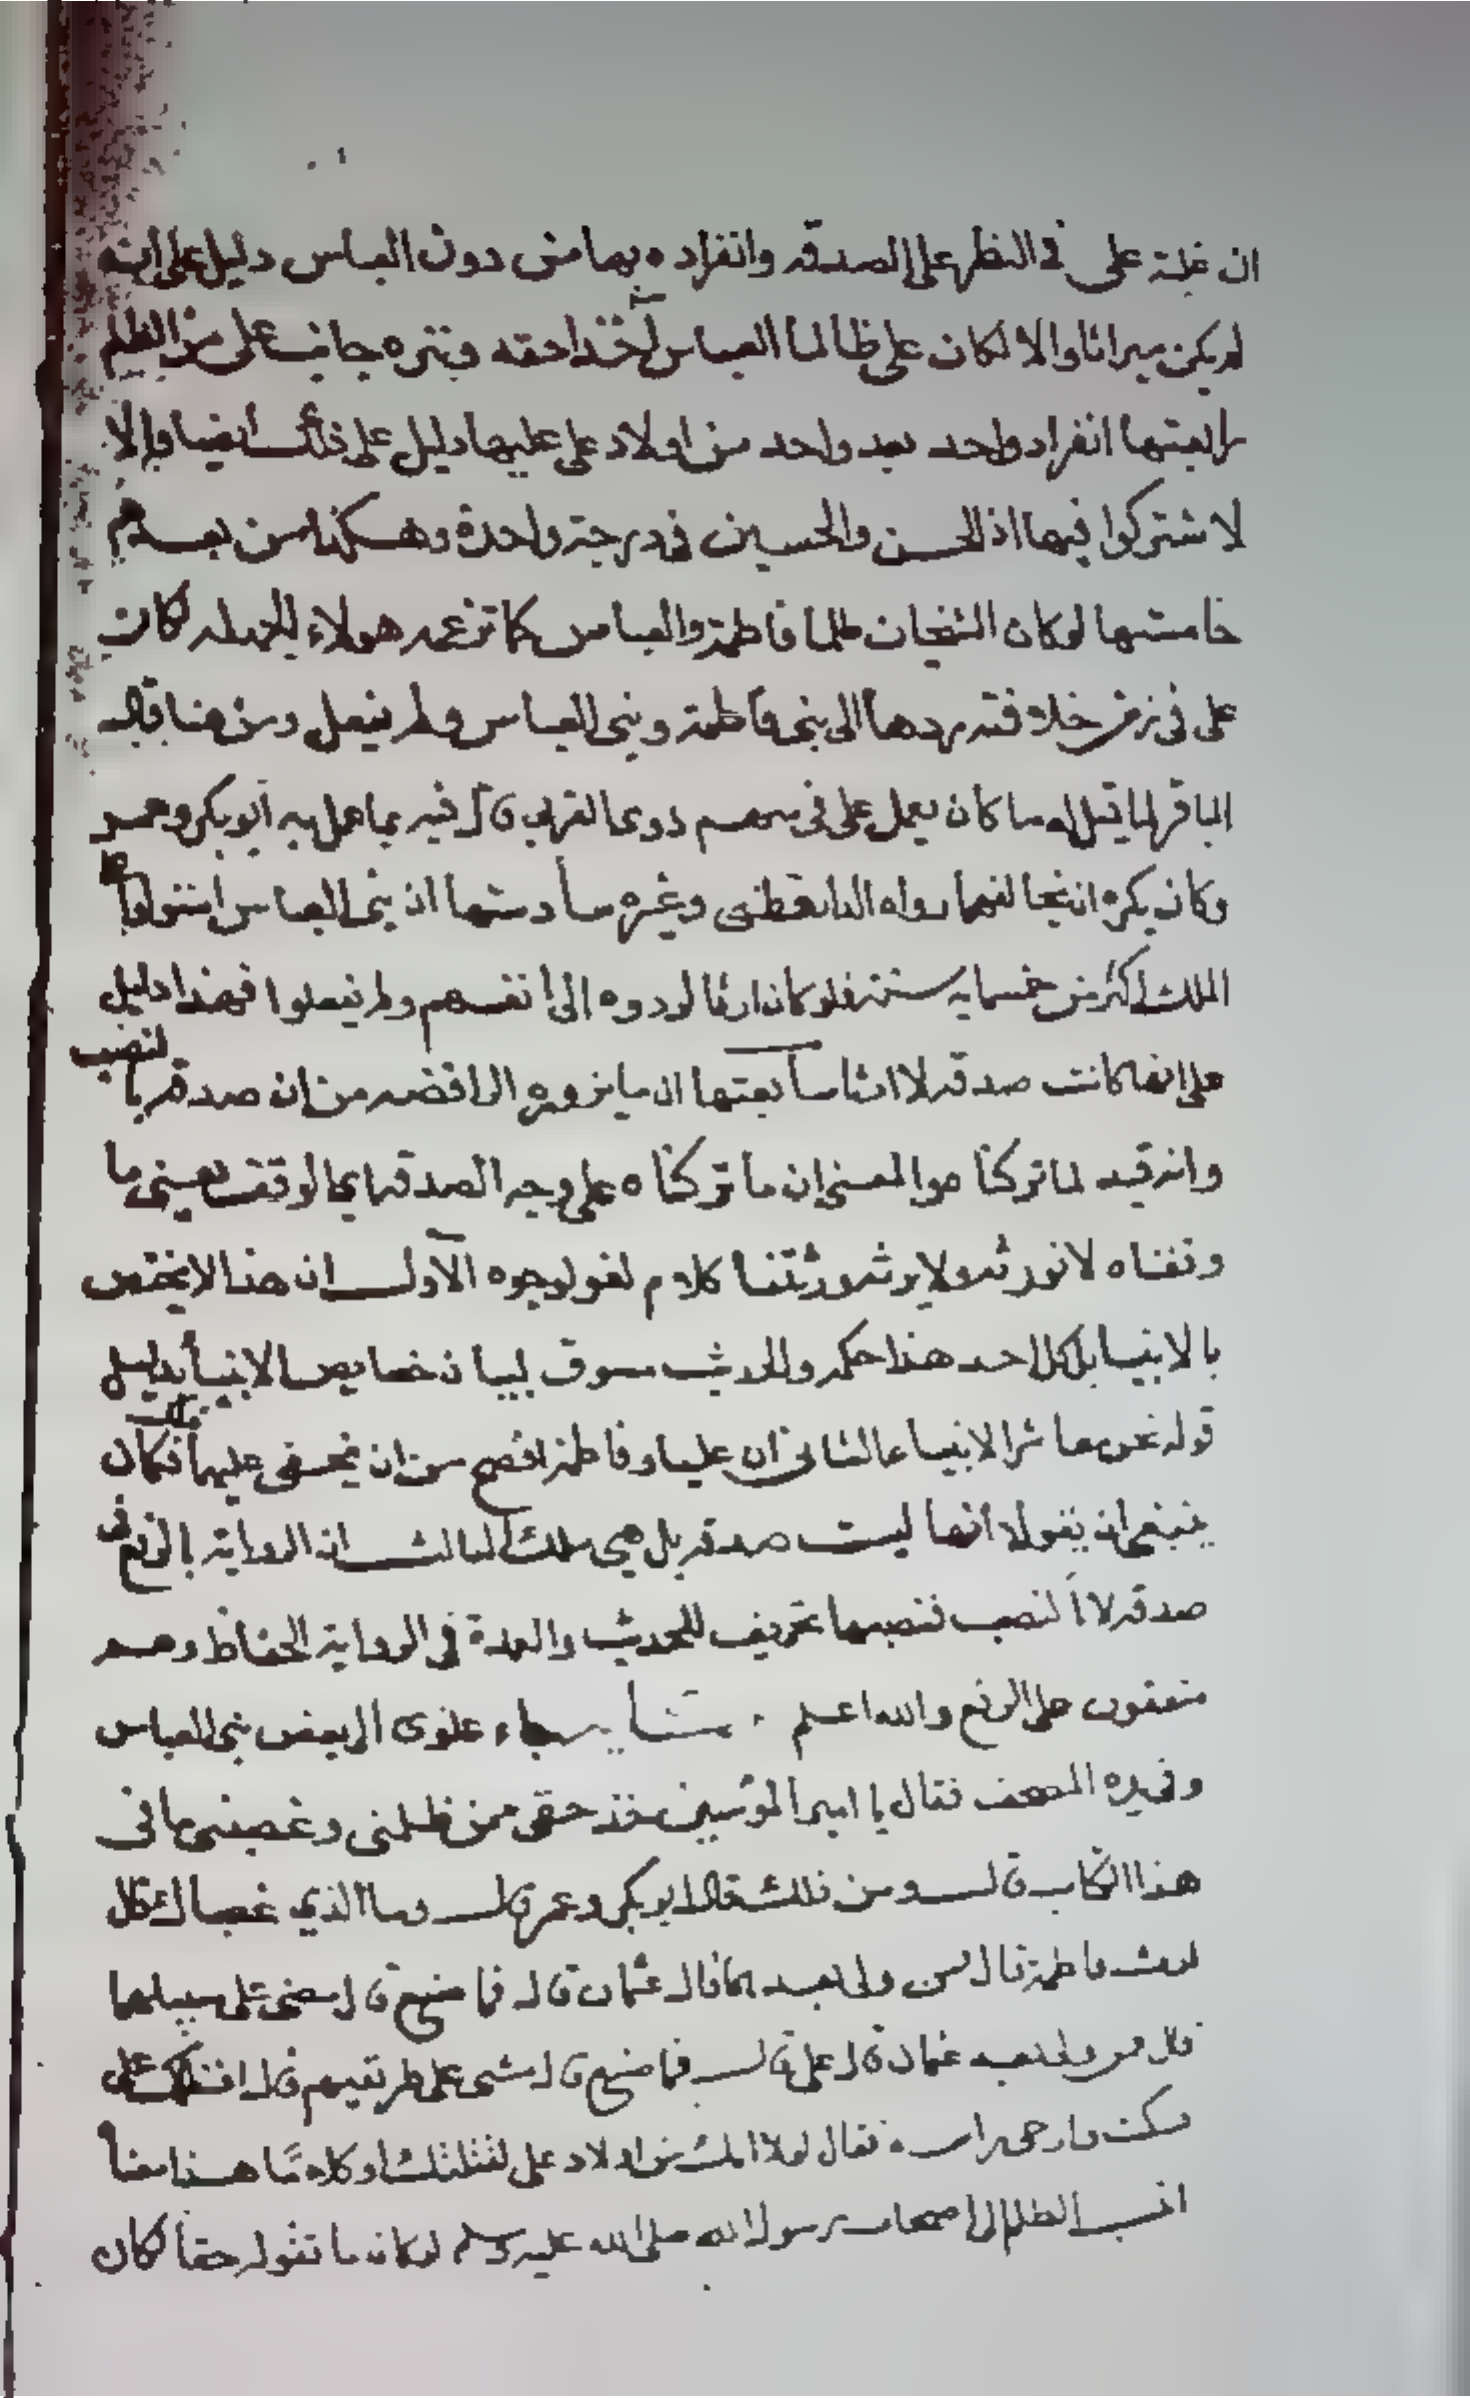 ان غلبة على في النظر على الصدقه وانفراده بها من دون العباس دليل على انه
لم يكن ميراثا والا لكان على ظالما العباس آخذا حقه وينزه جانب على من الظلم
رابعتها انفراد واحد بعد واحد من اولاد على عليها دليل على ذلك ايضا والا
لاشتركوا فيها اذ الحسن والحسين في درجة واحدة وهكذا من بعدهم
خامستها لو كان الشيخان ظلما فاطمة والعباس كما تزعمه هولاء الجهله لكان
على في زمن خلافته يردها الى بنى فاطمة وبنى العباس ولم يفعل ومن هنا قال
الباقر لما قيل له ما كان يعمل على في سهم ذوى القربى قال فيه بما عمل به ابو بكر وعمر
وكان يكره ان يخالفهما رواه الدارقطنى وغيره سادستها ان بنى العباس استولوا على
الملك اكثر من خمسمايه سنة فلو كان ارثا لردوه الى انفسهم ولم يفعلوا فهذا دليل
على انها كانت صدقه لا ارثا سابعتها ان ما يزوره الرافضه من ان صدقه بالنصب
وانه قيد لما تركنا هو المعنى ان ما تركناه على وجه الصدقه اى الوقف يعنى ما
وقفناه لا نورثه ولا يرثه ورثتنا كلام لغو لوجوه الاول ان هذا لا يختص
بالانبيا بل كل احد هذا حكمه والحديث مسوق لبيان خصايص الانبيا بدليل
قوله نحن معاشر الانبياء الثانى ان عليا وفاطمة افصح من ان يخفى عليهما ذلك فكان
ينبغى ان يقولا انها ليست صدقه بل هى ملك الثالث ان الرواية بالرفع في
صدقه لا النصب فنصبها تحريف للحديث والعمدة في الرواية الحفاظ وهم
متفقون على الرفع والله اعلم جاء علوى الى بعض بنى العباس
وفي يده المصحف فقال يا امير المؤمنين خذ حقى ممن ظلمنى وغصبنى ما فى
هذا الكتاب قال ومن ذلك قال ابو بكر وعمر قال وما الذي غصباك قال
ارث فاطمة قال فمن ولى بعدهما قال عثمان قال فما صنع قال مضى على سبيلهما
قال فمن ولى بعد عثمان قال على قال فما صنع قال مشى على طريقهم قال
سكت وارخى راسه فقال لولا انك من اولاد على لقتلتك او كلاما هذا معناه
انسب الظلم الى اصحاب رسول الله صلى الله عليه وسلم لو كان ما تقوله حقا لكان